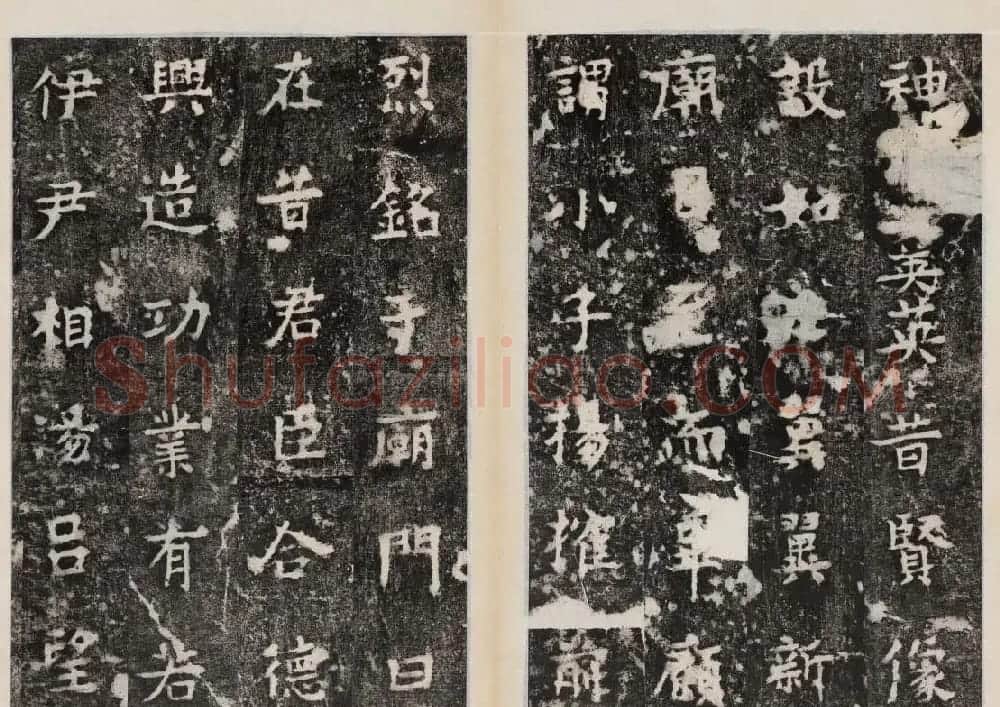 神英英昔賢像
設如翼新
廟至而顧
謂小子揚搉前
烈銘于廟門曰
在昔君臣合德
興造功業有若
伊尹相湯呂望
Shufaziliao.COM